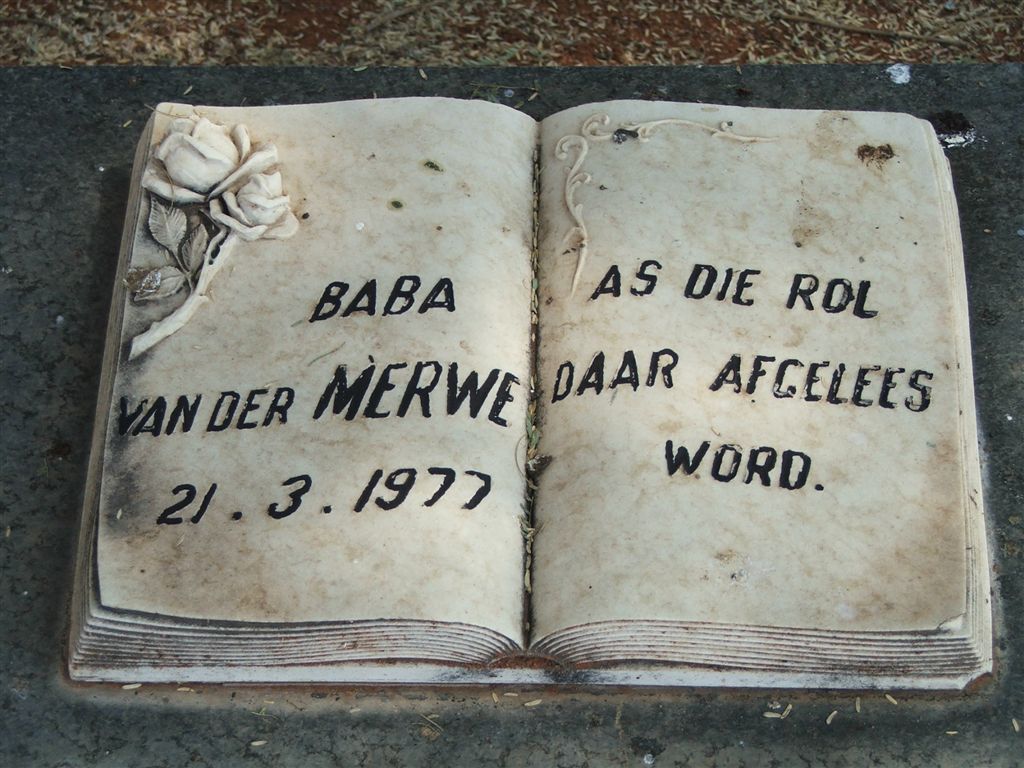 BABA
VAN DER MERWE
21.3.1977
AS DIE ROL
DAAR AFGELEES
WORD.